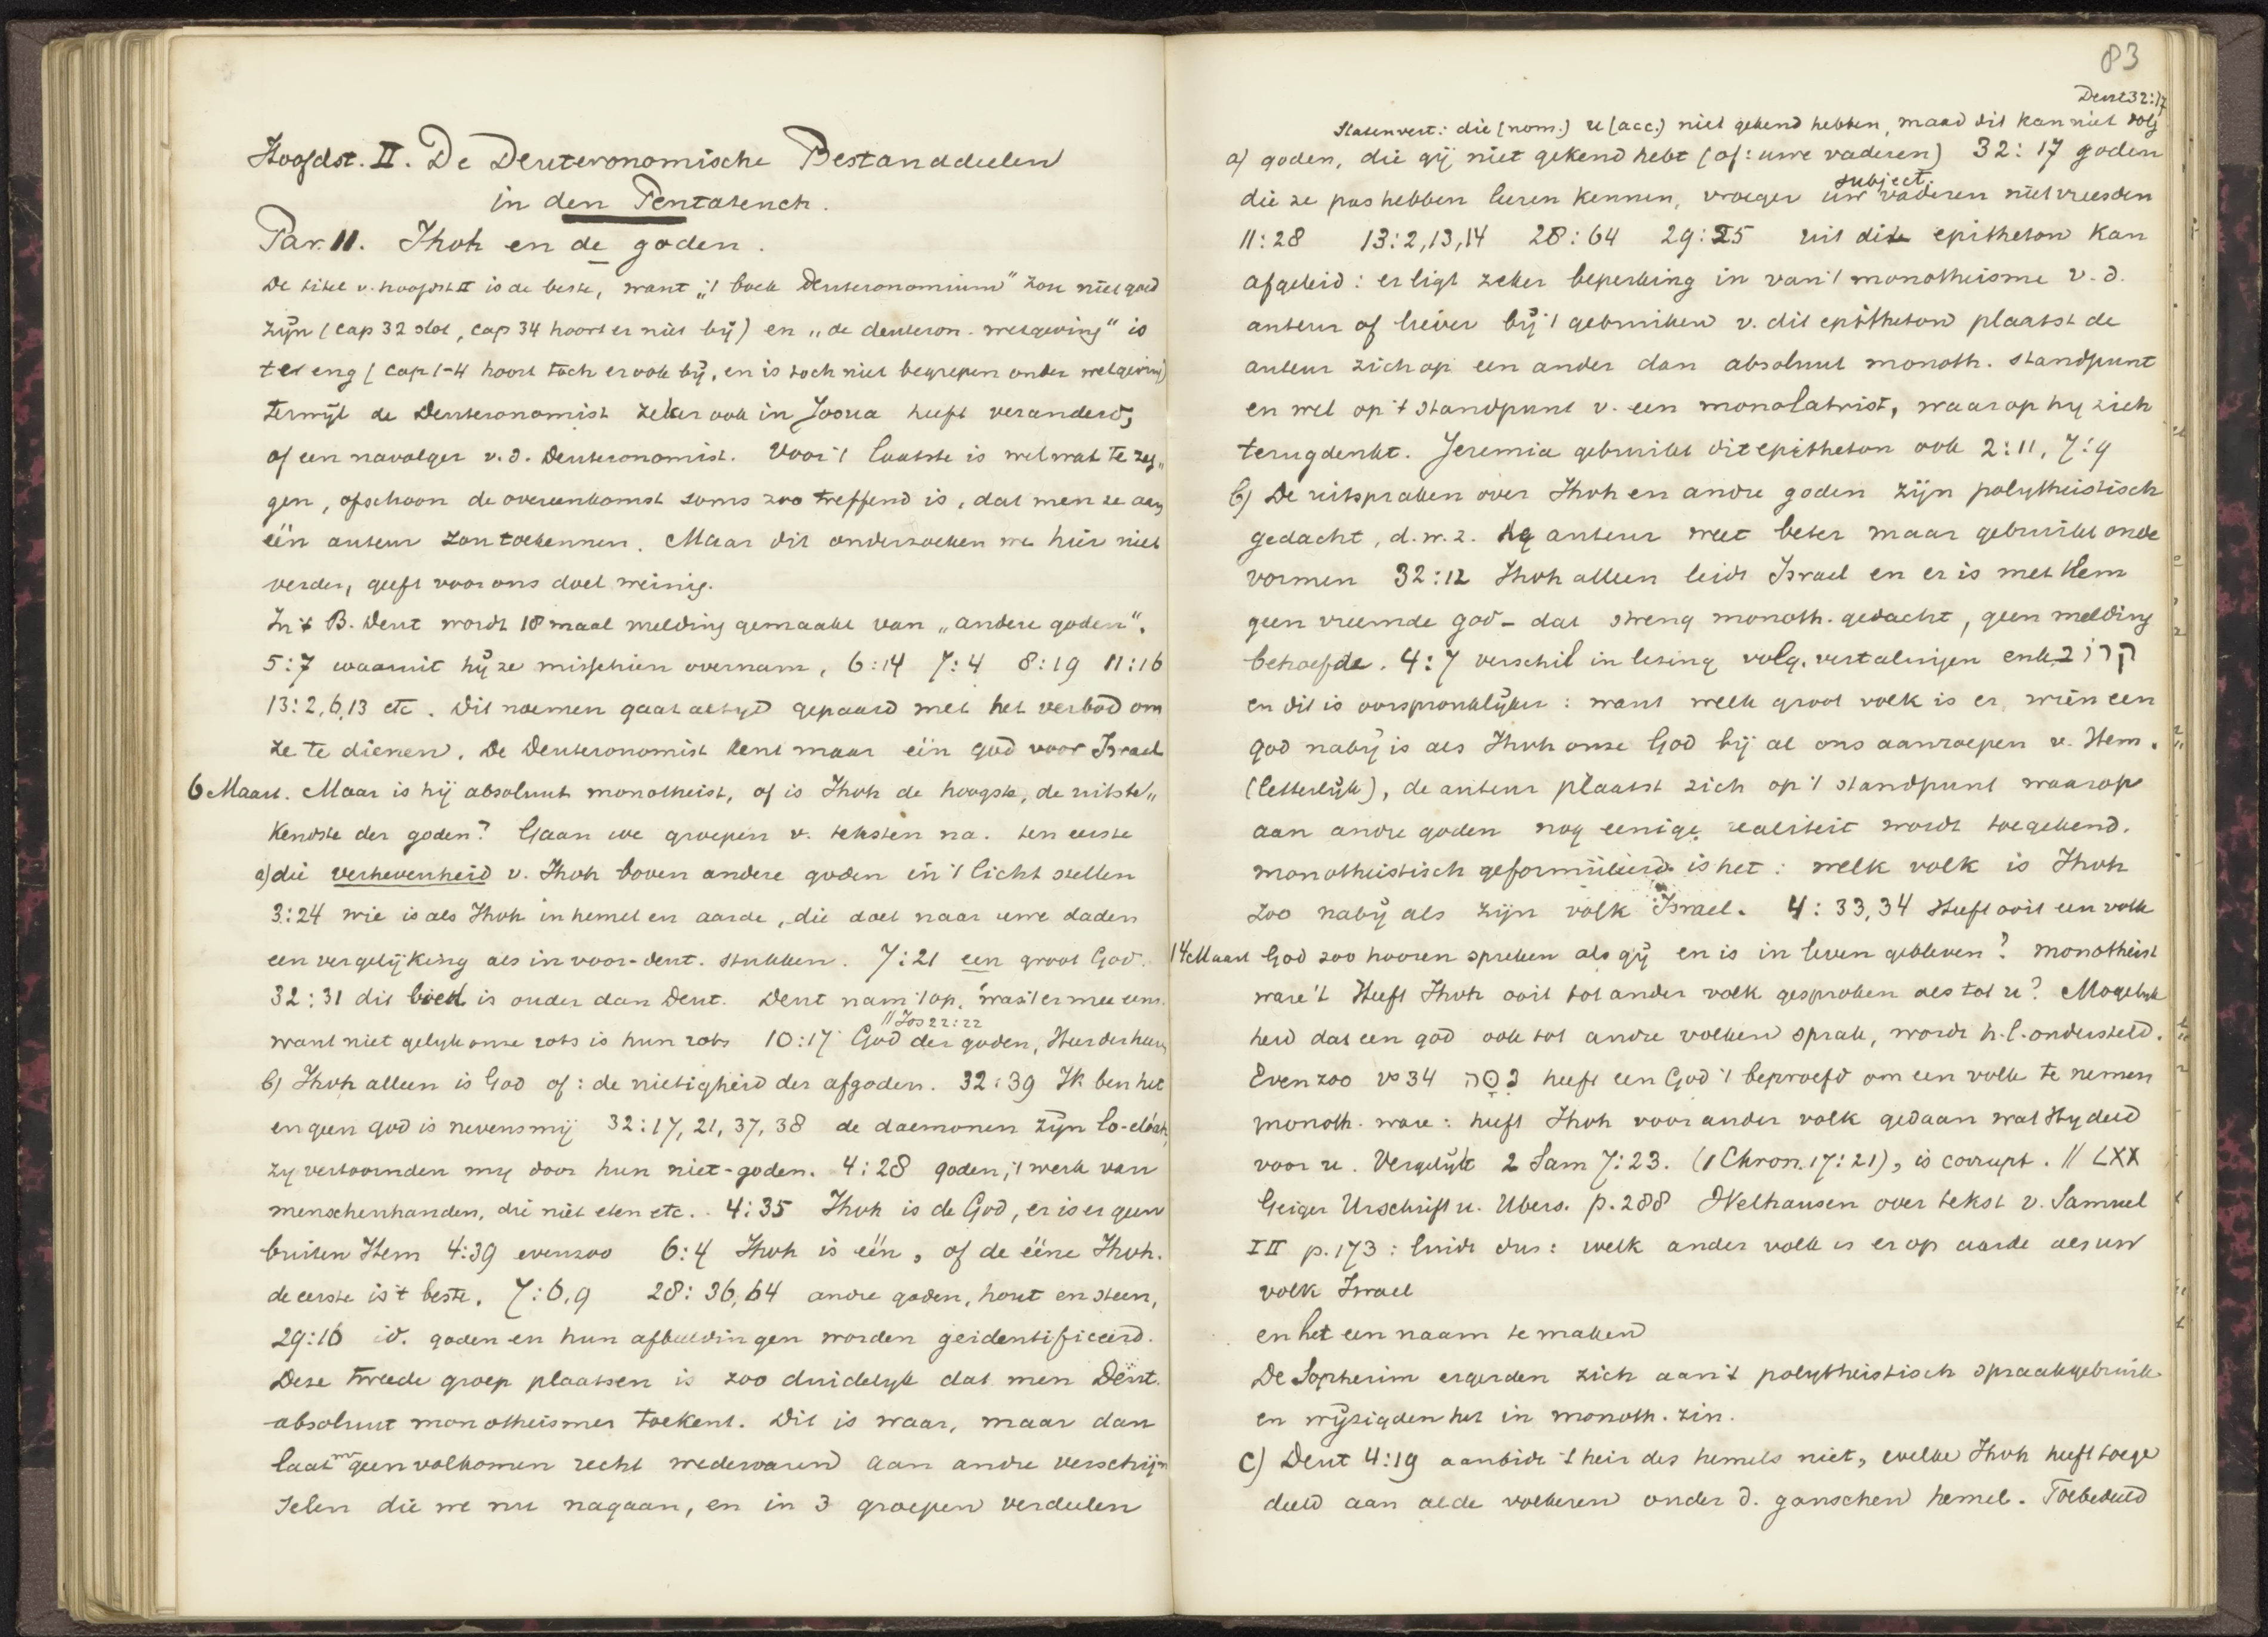 Hoofdst. II. De Deuteronomische Bestanddeelen
in den Pentateuch.
Par. 11. Jhvh en de goden.
De titel v. hoofdst II is de beste, want „'t boek Deuteronomium" zou niet goed
zijn (cap 32 slot, cap 34 hoort er niet bij) en „de deuteron. wetgeving" is
te eng (cap 1-4 hoort toch er ook bij, en is toch niet begrepen onder wetgeving)
terwijl de Deuteronomist zeker ook in Josua heeft veranderd,
of een navolger v. d. Deuteronomist. Voor 't laatste is wel wat te zeg„
gen, ofschoon de overeenkomst soms zoo treffend is, dat men ze aan
één auteur zou toekennen. Maar dit onderzoeken we hier niet
verder, geeft voor ons doel weinig.
In 't B. Deut wordt 18 maal melding gemaakt van „andere goden".
5:7 waaruit hij ze misschien overnam, 6:14 7:4 8:19 11:16
13:2,6,13 etc. Dit noemen gaat altijd gepaard met het verbod om
ze te dienen. De Deuteronomist kent maar één god voor Israel
6 Maart. Maar is hij absoluut monotheist, of is Jhvh de hoogste, de uitste„
kendste der goden? Gaan we groepen v. teksten na. ten eerste
a) die verhevenheid v. Jhvh boven andere goden in 't licht stellen
3:24 wie is als Jhvh in hemel en aarde, die doet naar uwe daden
een vergelijking als in voor-deut. stukken. 7:21 een groot God.
32:31 dit lied is ouder dan Deut. Deut nam 't op, was 't er mee eens.
// Jos 22:22
want niet gelijk onze rots is hun rots 10:17 God der goden, Heer der heeren
b) Jhvh alleen is God of: de nietigheid der afgoden. 32:39 Ik ben het
en geen god is nevens mij 32:17, 21, 37, 38 de daemonen zijn lo-eloah,
zy vertoornden my door hun niet-goden. 4:28 goden, 't werk van
menschenhanden, die niet eten etc. 4:35 Jhvh is de God, er is er geen
buiten Hem 4:39 evenzoo 6:4 Jhvh is één, of de ééne Jhvh.
de eerste is 't beste. 7:6,9 28:36,64 andre goden, hout en steen,
29:16 id. goden en hun afbeeldingen worden geidentificeerd.
Deze tweede groep plaatsen is zoo duidelyk dat men Deut.
absoluut monotheismes toekent. Dit is waar, maar dan
laat m geen volkomen recht wedervaren aan andre verschijn
selen die we nu nagaan, en in 3 groepen verdeelen
83
Deut 32:17
Statenvert: die (nom.) u (acc.) niet gekend hebben, maar dit kan niet volg
a) goden, die gij niet gekend hebt (of: uwe vaderen) 32:17 goden
subject.
die ze pas hebben leeren kennen, vroeger uw vaderen niet vreesden
11:28 13:2,13,14 28:64 29:25 uit dit epitheton kan
afgeleid: er ligt zeker beperking in van 't monotheisme v. d.
auteur of liever bij 't gebruiken v. dit epitheton plaatst de
auteur zich op een ander dan absoluut monoth. standpunt
en wel op 't standpunt v. een monolatrist, waarop hy zich
terugdenkt. Jeremia gebruikt dit epitheton ook 2:11, 7:9
b) De uitspraken over Jhvh en andre goden zijn polytheistisch
gedacht, d.w.z. de auteur weet beter maar gebruikt oude
vormen 32:12 Jhvh alleen leidt Israel en er is met Hem
geen vreemde god - dat streng monoth. gedacht, geen melding
behoefde. 4:7 verschil in lezing volg. vertalingen enk. קרוב
en dit is oorspronklijker: want welk groot volk is er, wien een
god nabij is als Jhvh onze God bij al ons aanroepen v. Hem.
(letterlijk), de auteur plaatst zich op 't standpunt waarop
aan andre goden nog eenige realiteit wordt toegekend.
monotheistisch geformuleerd is het: welk volk is Jhvh
zoo nabij als zijn volk Israel. 4:33,34 Heeft ooit een volk
14 Maart God zoo hooren spreken als gij en is in leven gebleven? monotheist
ware 't Heeft Jhvh ooit tot ander volk gesproken als tot u? Mogelijk
heid dat een god ook tot andre volken sprak, wordt h.l. ondersteld.
Evenzoo vs 34 נסה heeft een God 't beproefd om een volk te nemen
monoth. ware: heeft Jhvh voor ander volk gedaan wat Hy deed
voor u. Vergelijk 2 Sam 7:23. (1 Chron. 17:21), is corrupt. // LXX
Geiger Urschrift u. Ubers. p. 288 Welhausen over tekst v. Samuel
II p. 173: luidt dus: welk ander volk is er op aarde als uw
volk Israel
en het een naam te maken
De Sopherim ergerden zich aan 't polytheistisch spraakgebruik
en wijzigden het in monoth. zin.
c) Deut 4:19 aanbidt 't heir des hemels niet, welke Jhvh heeft toege
deeld aan alde volkeren onder d. ganschen hemel. Toebedeeld